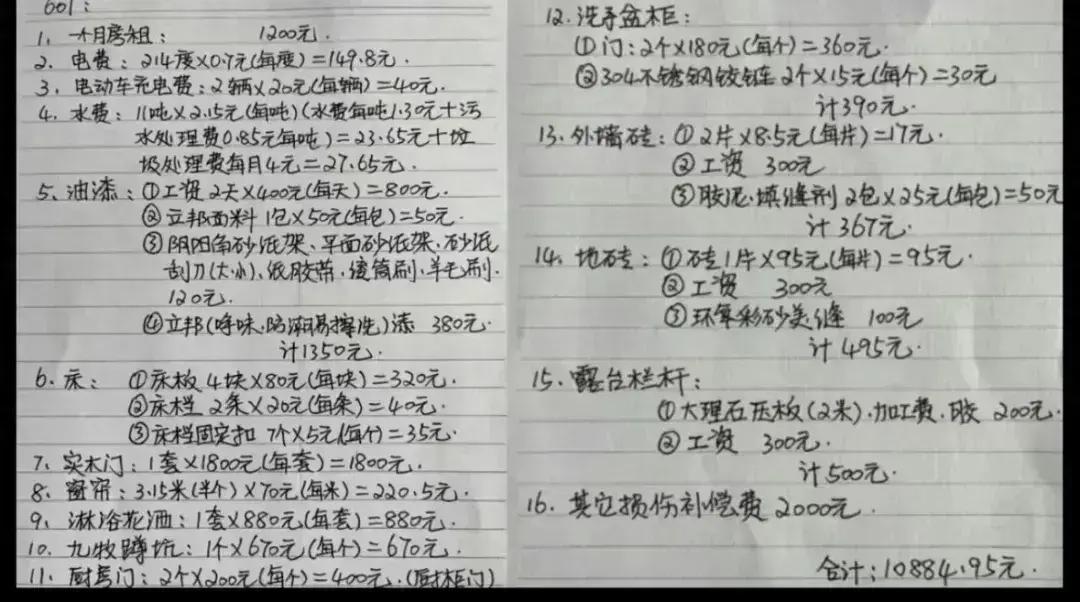 601:
1、一个月房租: 1200元.
2、电费: 214度×0.7元(每度)=149.8元.
3、电动车充电费: 2辆×20元(每辆)=40元.
4、水费: 11吨×2.15元(每吨)(水费每吨1.30元+污
水处理费0.85元每吨)=23.65元+垃
圾处理费每月4元=27.65元.
5、油漆: ①工资 2天×400元(每天)=800元.
②立邦面料 1包×50元(每包)=50元.
③阴阳角砂纸架、平面砂纸架、砂纸
刮刀(大小)、纸胶带、滚筒刷、羊毛刷.
120元.
④立邦(净味、防潮易擦洗)漆 380元.
计1350元.
6、床: ①床板 4块×80元(每块)=320元.
②床档 2条×20元(每条)=40元.
③床档固定扣 7个×5元(每个)=35元.
7、实木门: 1套×1800元(每套)=1800元.
8、窗帘: 3.15米(半个)×70元(每米)=220.5元.
9、淋浴花洒: 1套×880元(每套)=880元.
10、九牧蹲坑: 1个×670元(每个)=670元.
11、厨房门: 2个×200元(每个)=400元.(厨柜门)
12、洗手盆柜:
①门: 2个×180元(每个)=360元.
②304不锈钢铰链 2个×15元(每个)=30元
计390元.
13、外墙砖: ①2片×8.5元(每片)=17元.
②工资 300元
③胶泥、填缝剂 2包×25元(每包)=50元
计367元.
14、地砖: ①砖1片×95元(每片)=95元.
②工资 300元
③环氧彩砂美缝 100元
计495元.
15、露台栏杆:
①大理石压板(2米)、加工费、胶 200元.
②工资 300元.
计500元.
16、其它损伤补偿费 2000元.
合计: 10884.95元.